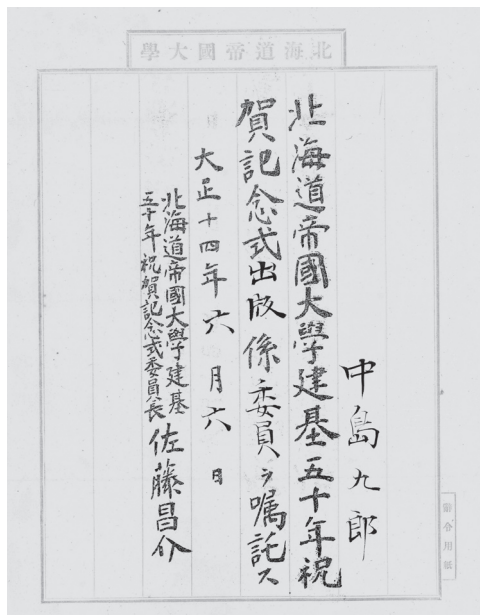 北海道帝國大學
中島九郎
北海道帝國大學建基五十年祝
賀記念式出版係委員ヲ嘱託ス
大正十四年六月六日
北海道帝國大學建基
五十年祝賀記念式委員長 佐藤昌介
辭令用紙